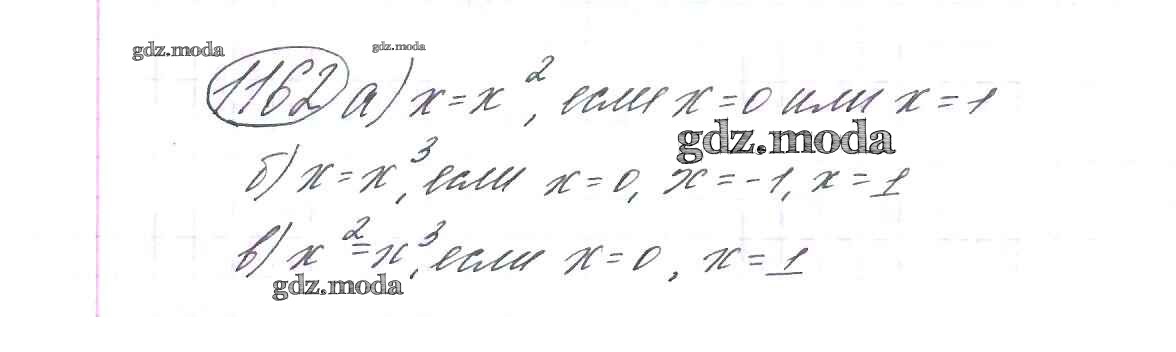 gdz.moda gdz.moda
1162 а) x = x², если x = 0 или x = 1
gdz.moda
б) x = x³, если x = 0, x = -1, x = 1
в) x² = x³, если x = 0, x = 1
gdz.moda